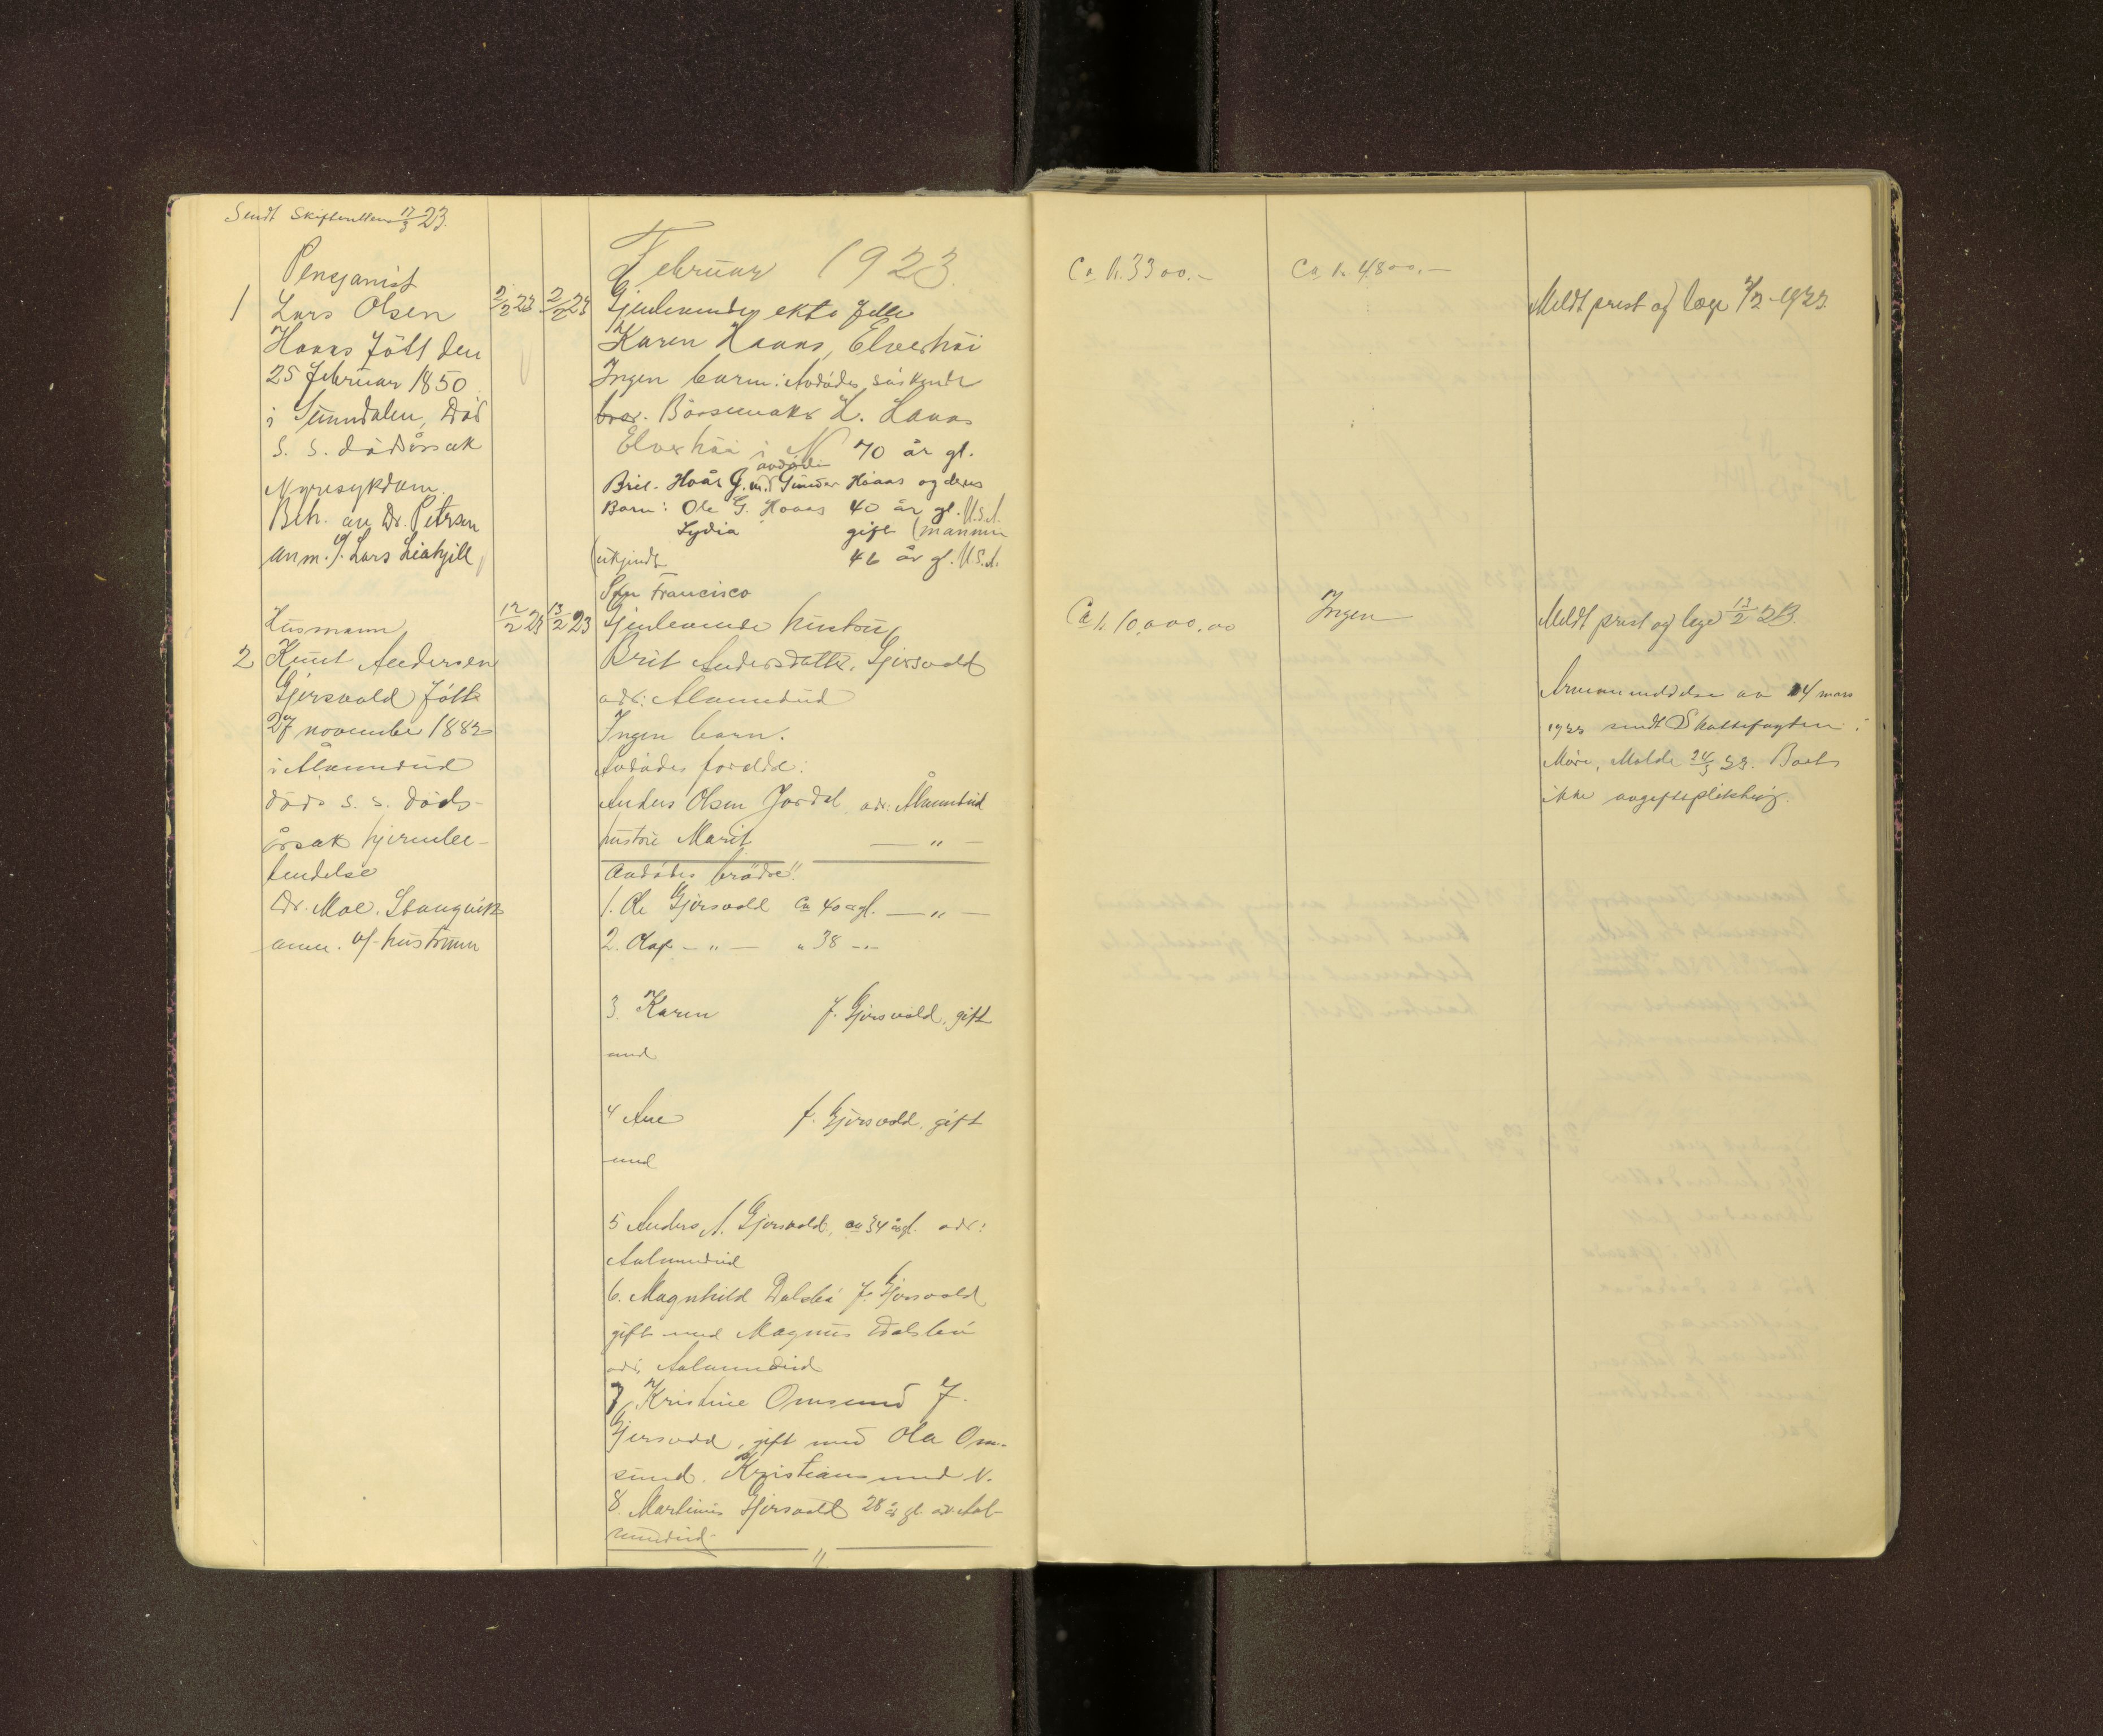 Sendt Skifteretten 17/3 23.
Februar 1923.
Pensjonist
1 Lars Olsen 2/2 23 2/2 23
Haaas född den
25 februar 1850
i Sunndalen, Död
s. s. dödsårsak
Nyresykdom.
Beh. av Dr. Petersen
anm. v/ Lars Liahjell
Gjenlevende ektefelle
Karen Haaas, Elverhöi
Ingen barn: Avdödes söskende
bror. Börsemaker H. Haaas
Elverhöi i N 70 år gl.
avdöde
Brit. Hoås G. m. Gunder Hoaas og deres
Barn: Ole G. Hoaas 40 år gl. U.S.A.
Lydia gift (mannen
ukjendt 46 år gl. U.S.A.
San Francisco
Ca k. 3300.-
Ca k. 4800.-
Meldt prest og læge 7/2-1923.
Husmann 12/2 23 13/2 23
2 Knut Andersen
Gjersvold född
27 november 1882
i Ålvundeid
död s. s. döds-
årsak hjernebe-
tendelse
Dr. Moe. Stangvik
anm. v/ hustruen
Gjenlevende hustru
Brit Andersdatter Gjersvold
adr: Alvundeid
Ingen barn.
Avdödes foreldre:
Anders Olsen Jordal adr: Ålvundeid
hustru Marit — „ —
Avdödes brödre:
1. Ole Gjersvold ca 40 år gl. — „ —
2. Olaf — „ — „ 38 — „ —
3. Karen f. Gjersvold, gift
med
4 Ane f. Gjersvold, gift
med
5 Anders A. Gjersvold, ca 34 år gl. adr:
Aalvundeid
6. Magnhild Dalsbö f. Gjersvold
gift med Magnus Dalsbö
adr. Aalvundeid
7, Kristine Omsund f.
Gjersvold, gift med Ola Om-
sund. Kristiansund N.
8. Martinus Gjersvold 28 år gl. adr Aal-
vundeid
— „ —
Ca k. 10,000.00
Ingen
Meldt prest og læge 13/2 23.
Arvemeddelse av 14 mars
1923 sendt Skattefogden i
Möre, Molde 24/3 23. Boet
ikke avgiftspliktig.